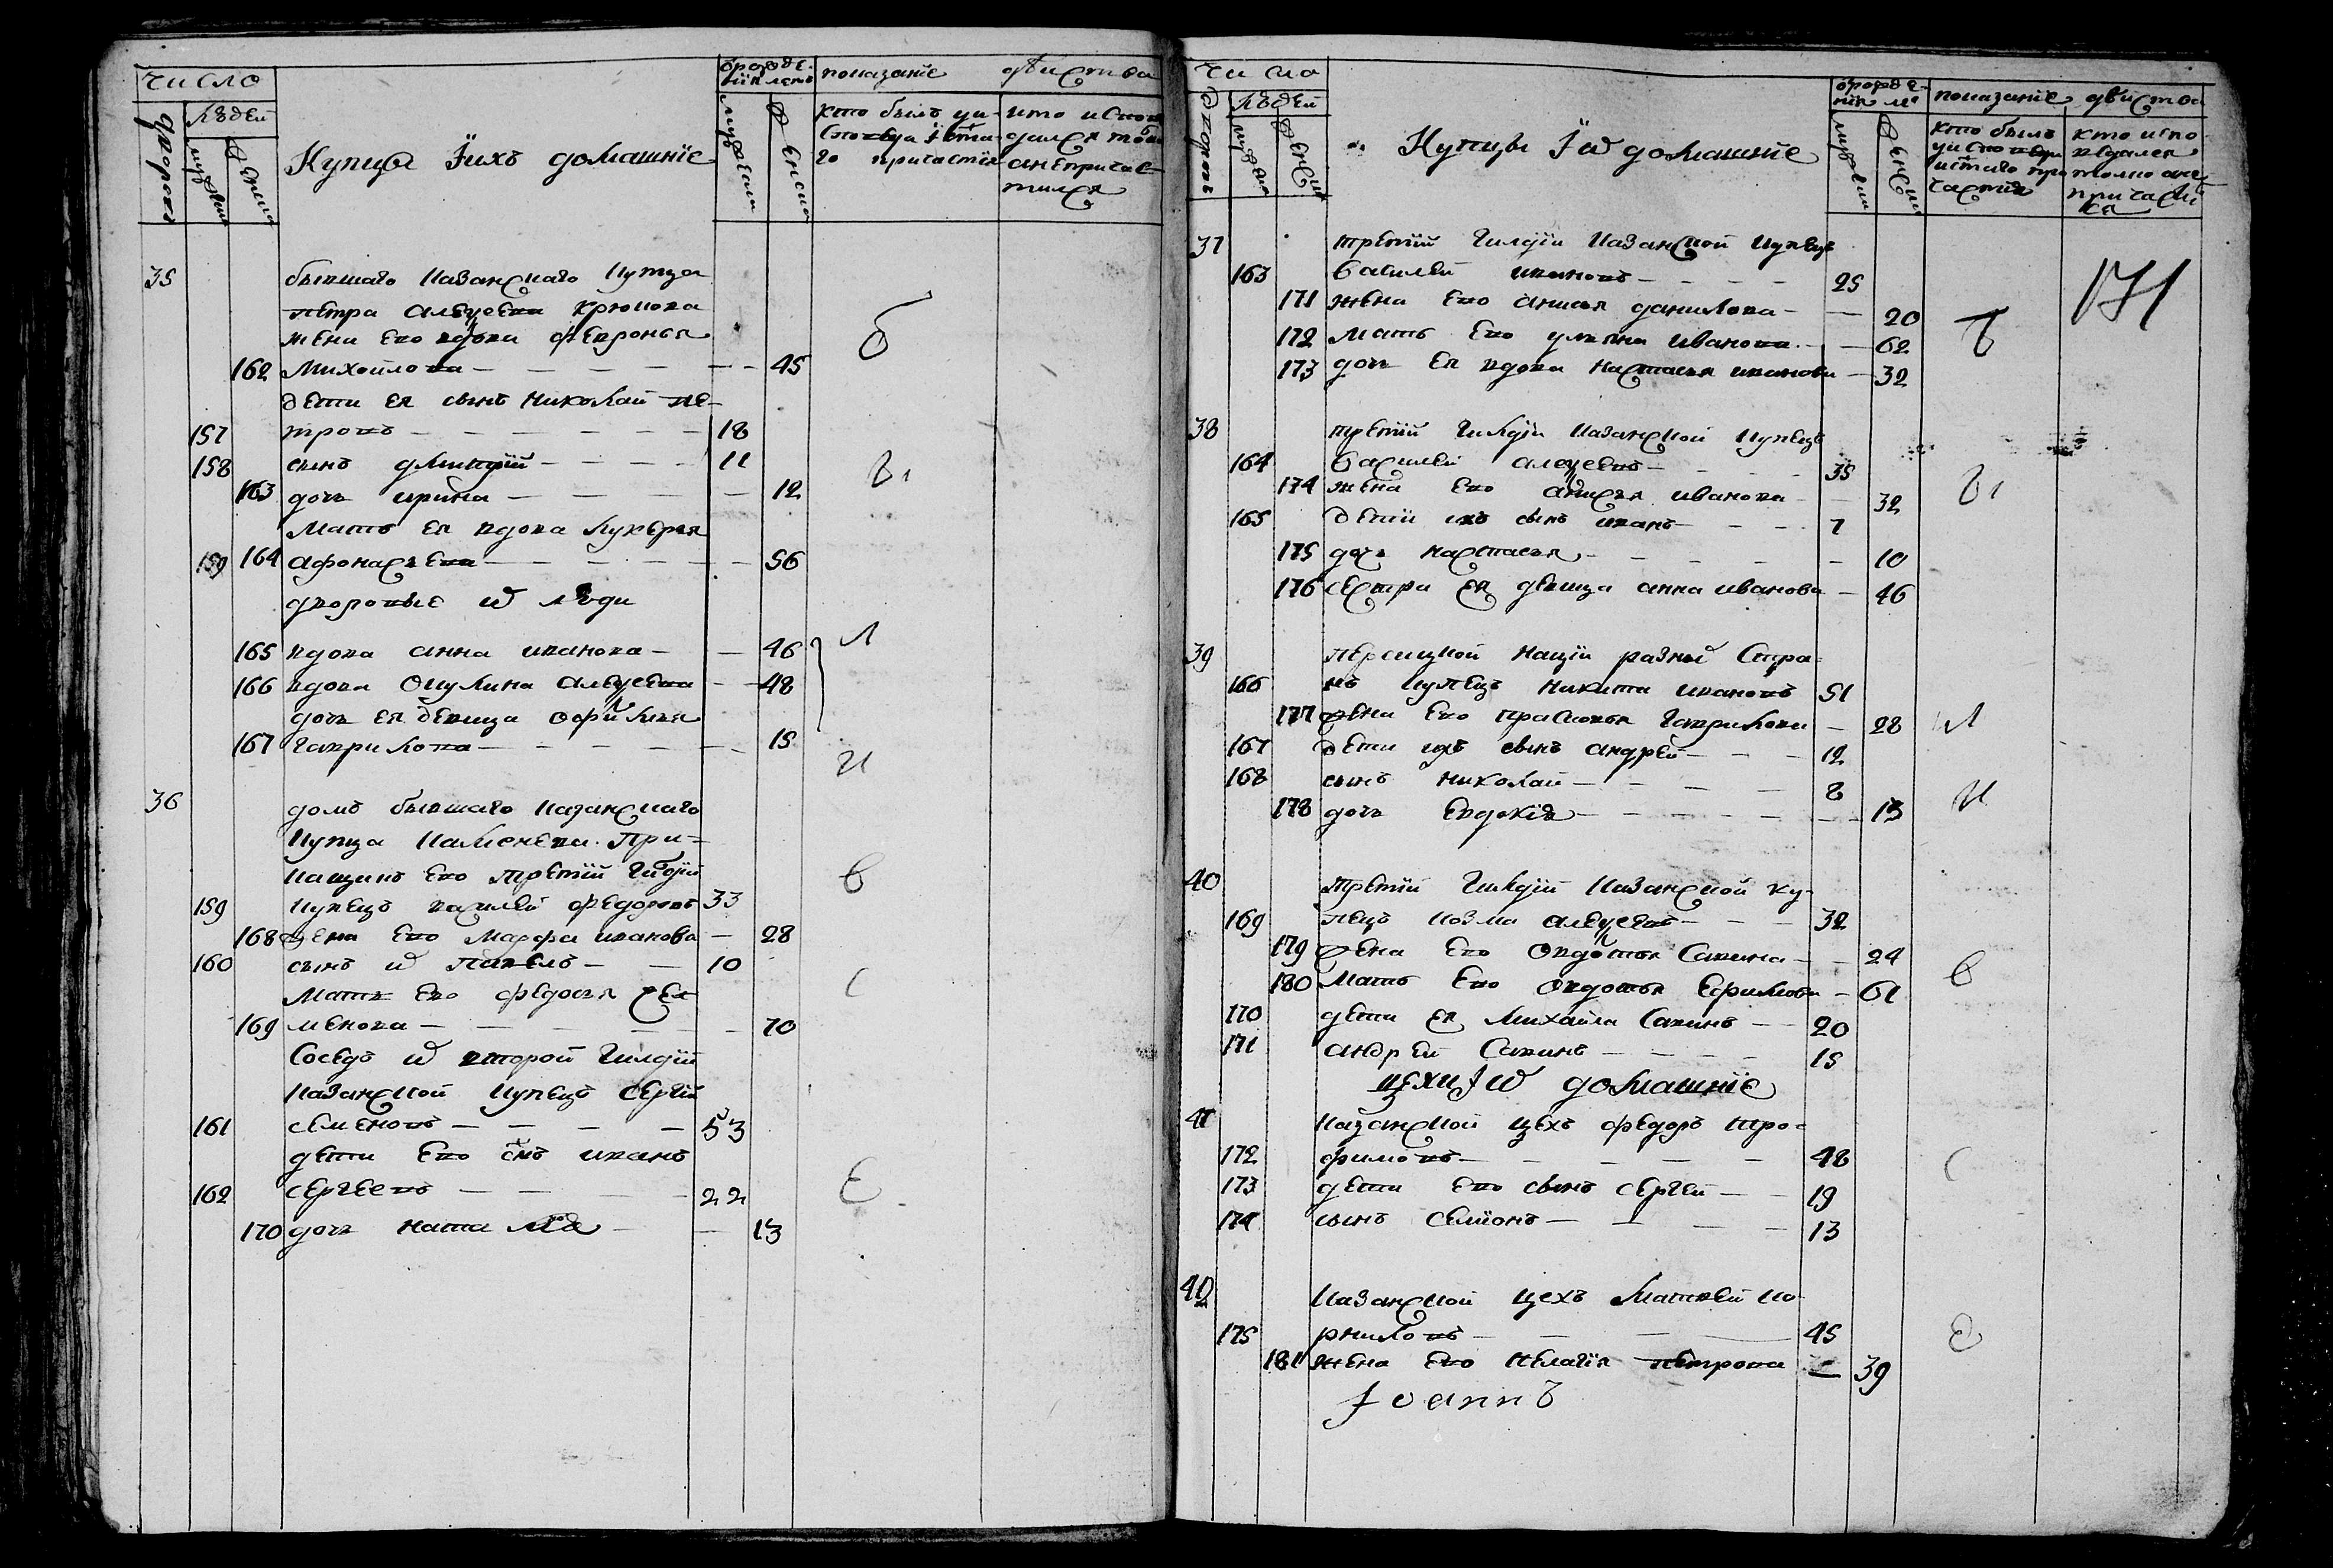 число
людей
дворовъ
мужеска
женска
Купцы ӏ ихъ домашнїе
ѿ рожде-
нїя летъ
мужеска
женска
показанїе действа
кто былъ уи-
споведи ӏ ст҃и-
го причастїя
кто испове-
дался токмо
а не причас-
тился
35 бывшаго казанскаго купца
петра алеѯеева крюкова
жена ево вдова февронья
162 михойлова — 45
дети ея сынъ николай пе-
157 тровъ — 18
158 сынъ дмитрїй — 11
163 дочь ирина — 12
мать ея вдова лукерья
159 164 афонасьева — 56
дворовые ѿ люди
165 вдова анна иванова — 46
166 вдова окулина алеѯеева — 48
дочь ея девица офимья
167 гаврилова — 15
36 домъ бывшаго казанскаго
купца каменева. при-
кащикъ ево третїй гилдїи
159 купецъ василей федоровъ 33
168 жена ево марфа иванова — 28
160 сынъ ѿ павелъ — 10
мать ево федосья се-
169 менова — 70
соседъ ѿ второй гилдїи
казанской купецъ сергїй
161 семеновъ — 53
дети ево сн҃ъ иванъ
162 сергеевъ — 22
170 дочь наталїя — 13
б
ы
л
и
в
с
е
число
дворовъ
людей
мужеска
женска
Купцы ӏ ѿ домашнїе
ѿ рожде-
нїя ле
мужеска
женска
показанїе действа
кто былъ
у исповеди
и ст҃аго при
частия
кто испо-
ведался
толко а не
причасти
ся
171
37 третїй гилдїи казанской купецъ
163 василей ивановъ — 25
171 жена ево анисья данилова — 20
172 мать ево ульяна иванова — 62
173 дочь ея вдова настасья иванова — 32
38 третїй гилдїи казанской купецъ
164 василей алеѯеевъ — 35
174 жена ево анисья иванова — 32
165 дети ихъ сынъ иванъ — 7
175 дочь настасья — 10
176 сестра ея девица анна иванова — 46
39 персицкой нацїи разных стра-
166 нъ купецъ никита ивановъ 51
177 жена ево прасковья гаврилова — 28
167 дети ихъ сынъ андрей — 12
168 сынъ николай — 8
178 дочь евдокїя — 13
40 третїй гилдїи казанской ку-
169 пецъ козма алеѯеевъ — 32
179 жена ево овдотья савина — 24
180 мать ево овдотья ефимова — 61
170 дети ея михайла савинъ — 20
171 андрей савинъ — 15
цехи ӏ ѿ домашнїе
41 казанской цехъ федоръ тро-
172 фимовъ — 48
173 дети ево сынъ сергей — 19
174 сынъ семионъ — 13
42 казанской цехъ матвей ко-
175 рниловъ — 45
181 жена ево пелагїя петрова — 39
ӏоаннъ
б
ы
л
и
в
с
е